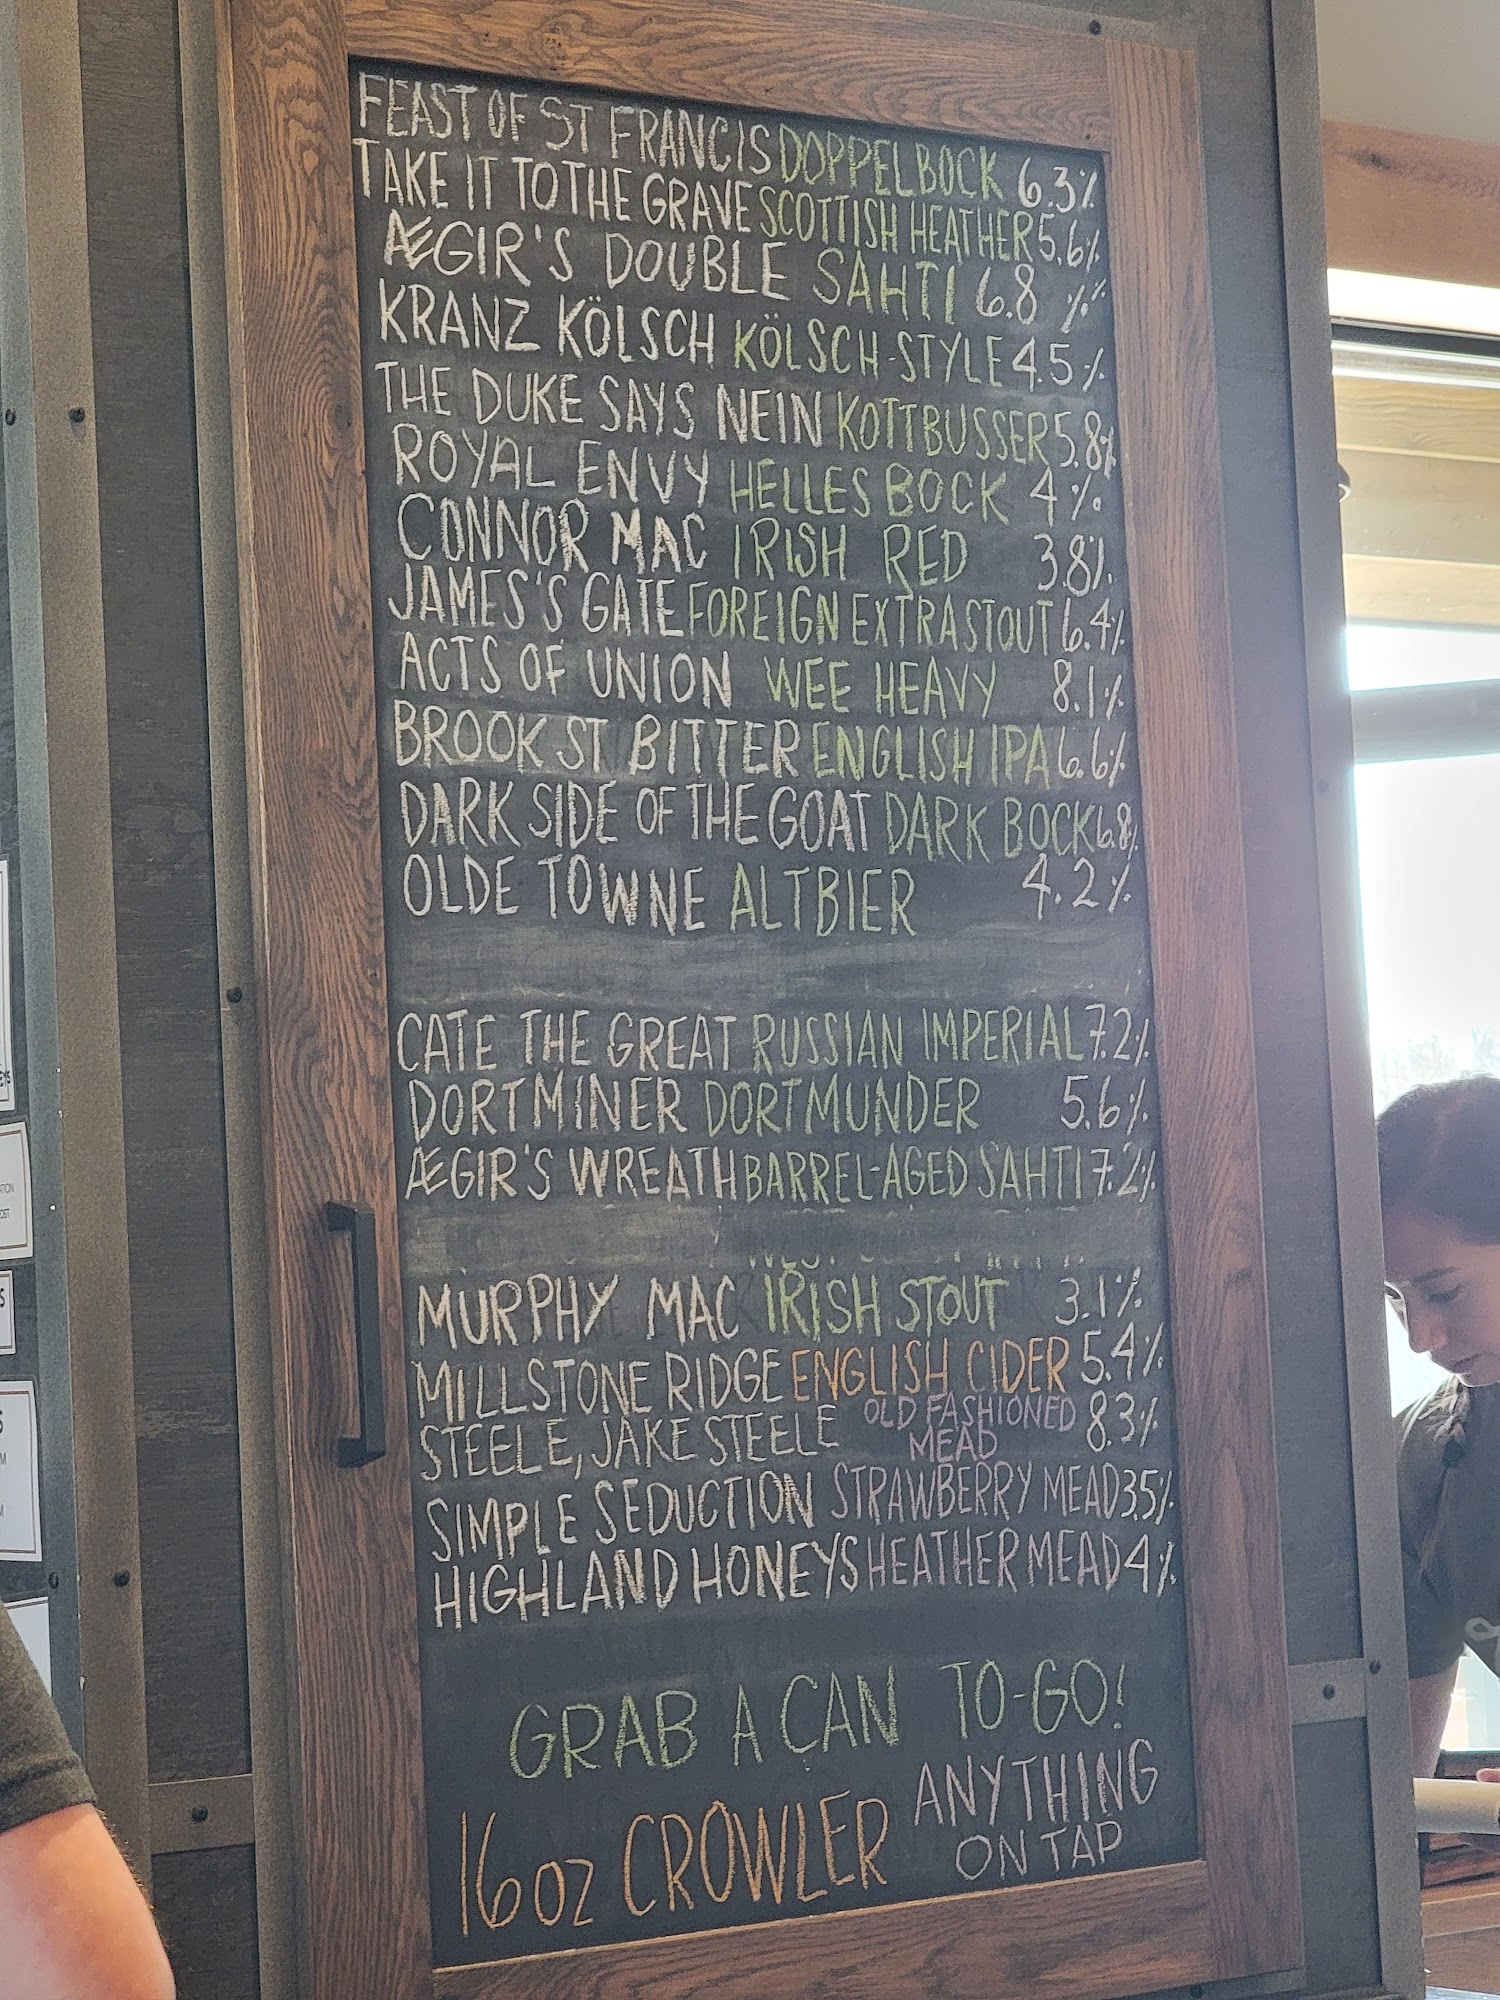 FEAST OF ST FRANCIS DOPPELBOCK 6.3%
TAKE IT TO THE GRAVE SCOTTISH HEATHER 5.6%
ÆGIR'S DOUBLE SAHTI 6.8 %
KRANZ KÖLSCH KÖLSCH-STYLE 4.5%
THE DUKE SAYS NEIN KOTTBUSSER 5.8%
ROYAL ENVY HELLES BOCK 4%
CONNOR MAC IRISH RED 3.8%
JAMES'S GATE FOREIGN EXTRA STOUT 6.4%
ACTS OF UNION WEE HEAVY 8.1%
BROOK ST BITTER ENGLISH IPA 6.6%
DARK SIDE OF THE GOAT DARK BOCK 6.8%
OLDE TOWNE ALTBIER 4.2%
CATE THE GREAT RUSSIAN IMPERIAL 7.2%
DORTMINER DORTMUNDER 5.6%
ÆGIR'S WREATH BARREL-AGED SAHTI 7.2%
MURPHY MAC IRISH STOUT 3.1%
MILLSTONE RIDGE ENGLISH CIDER 5.4%
STEELE, JAKE STEELE OLD FASHIONED MEAD 8.3%
SIMPLE SEDUCTION STRAWBERRY MEAD 3.5%
HIGHLAND HONEYS HEATHER MEAD 4%
GRAB A CAN TO-GO!
16 OZ CROWLER ANYTHING
ON TAP